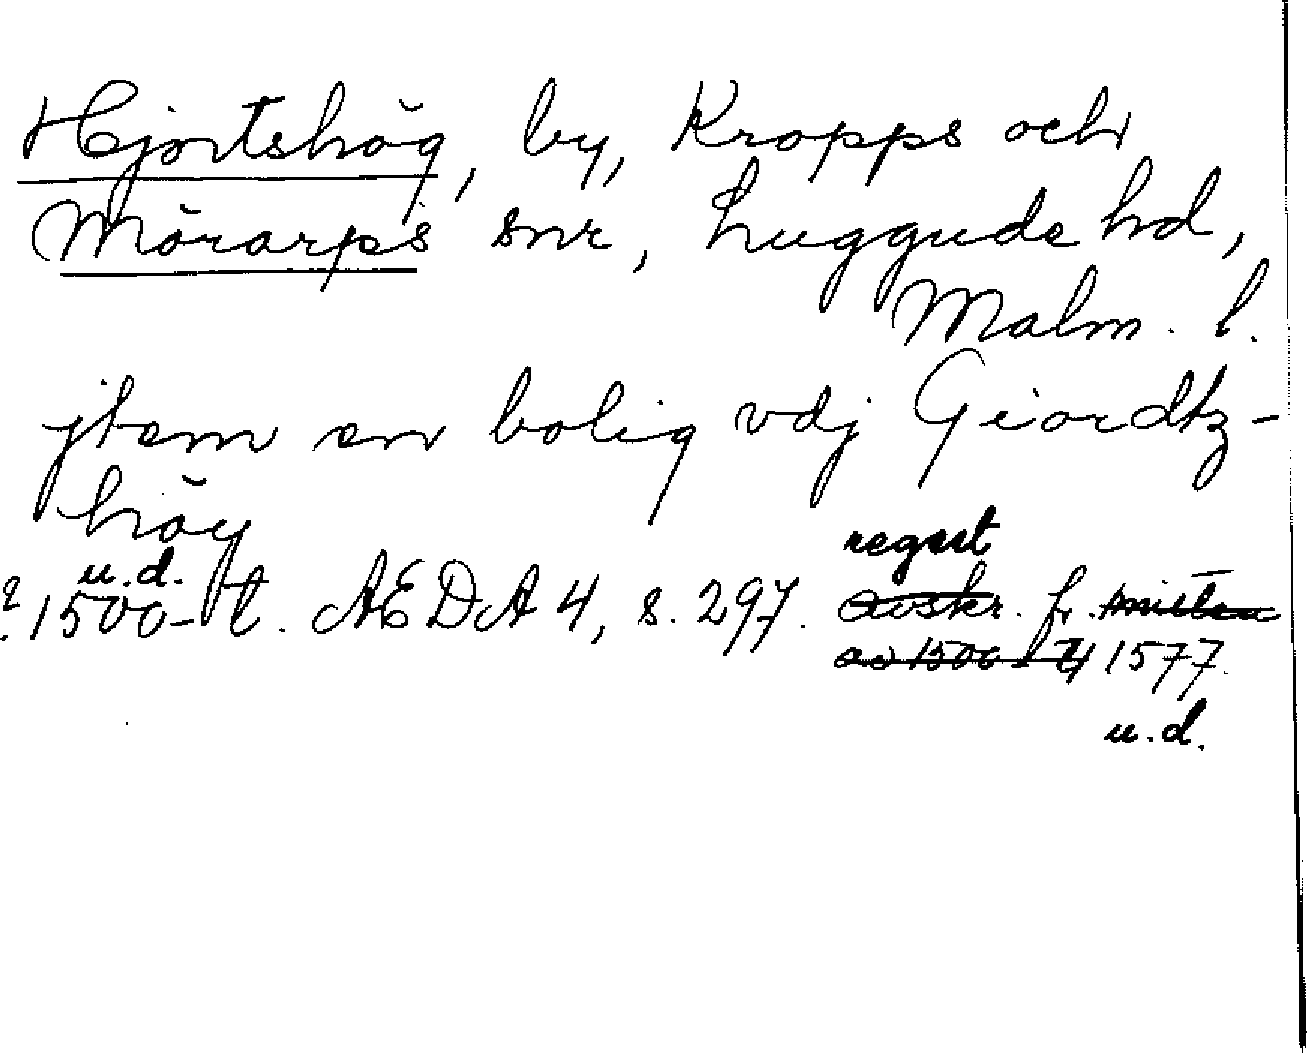 Hjortshög, by, Kropps och
Mörarps snr, Luggude hd,
Malm. l.
jtem en bolig vdj Giordtz-
høy
u.d. regest
? 1500-t. ÆDA 4, s. 297. avskr. fr. mitten
av 1500-t 1577.
u.d.